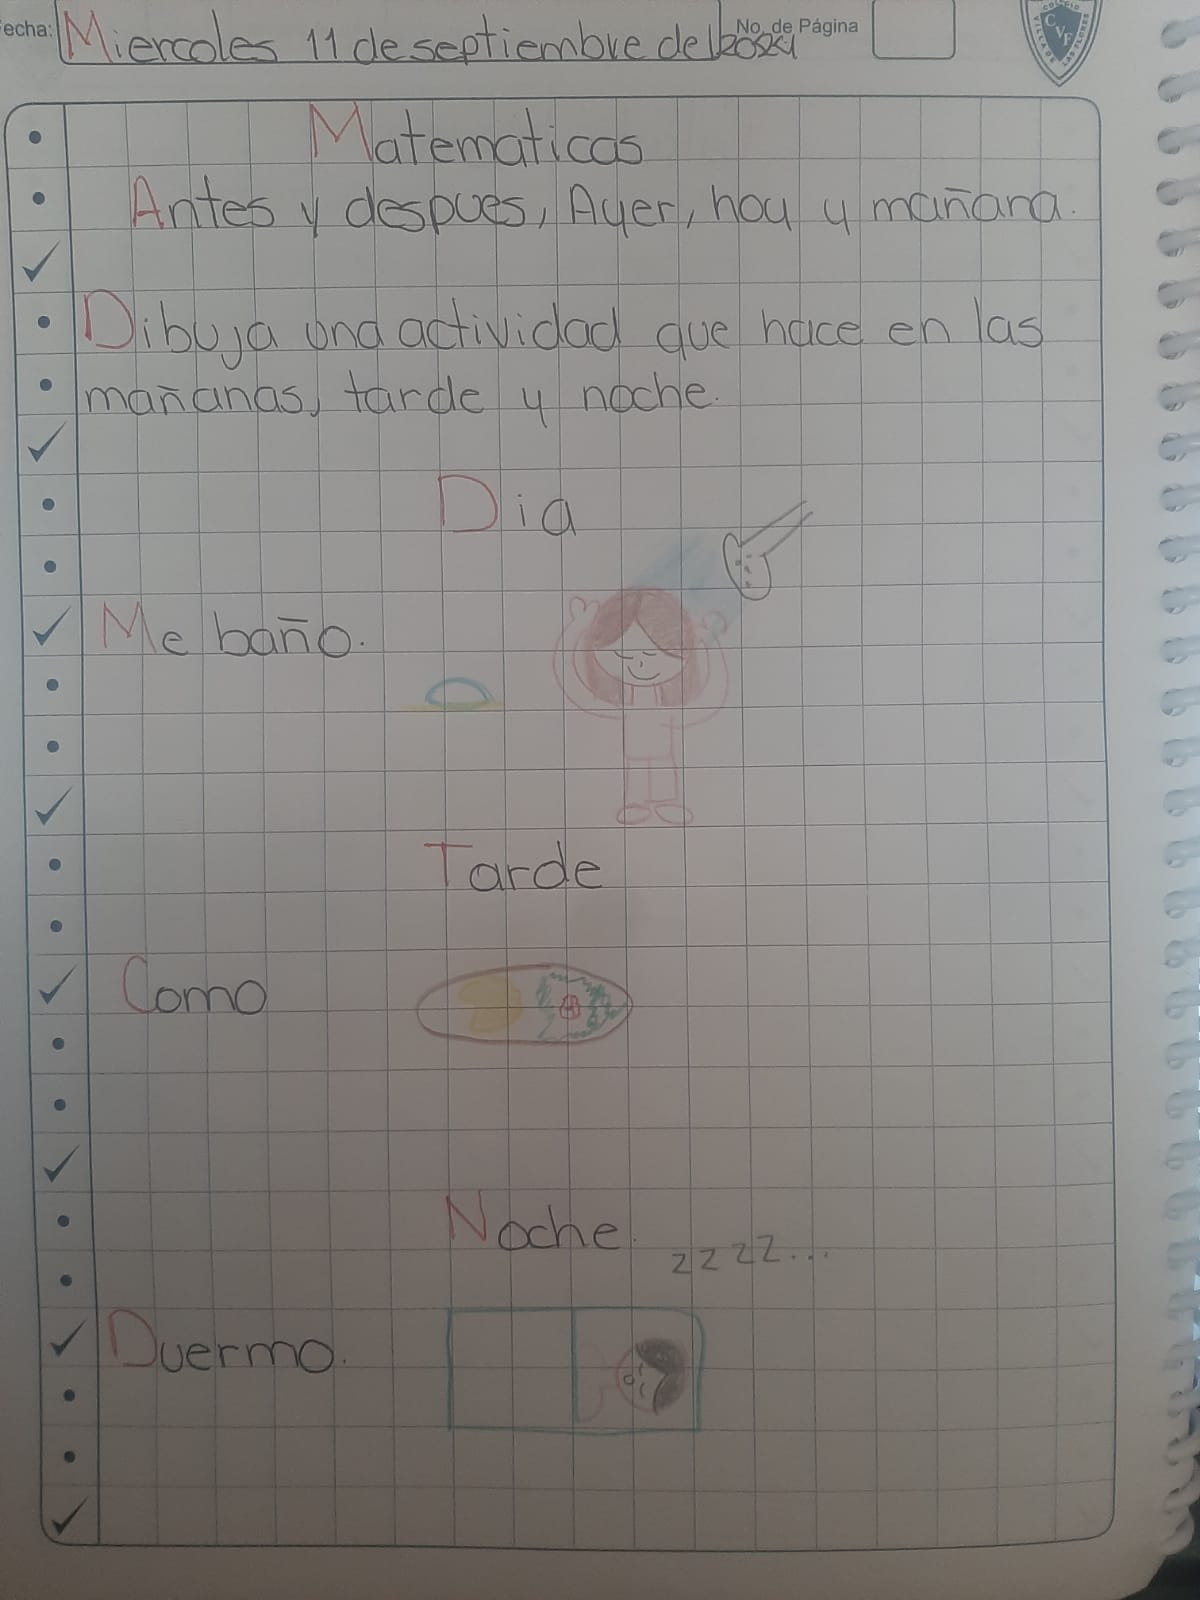 echa: Miercoles 11 de septiembre del 2024 No. de Página
COLEGIO CVF VILLA DE LAS FLORES
Matematicas
Antes y despues, Ayer, hoy y mañana.
Dibuja una actividad que hace en las
mañanas, tarde y noche.
Dia
Me baño.
Tarde
Como
Noche.
zzzz...
Duermo.